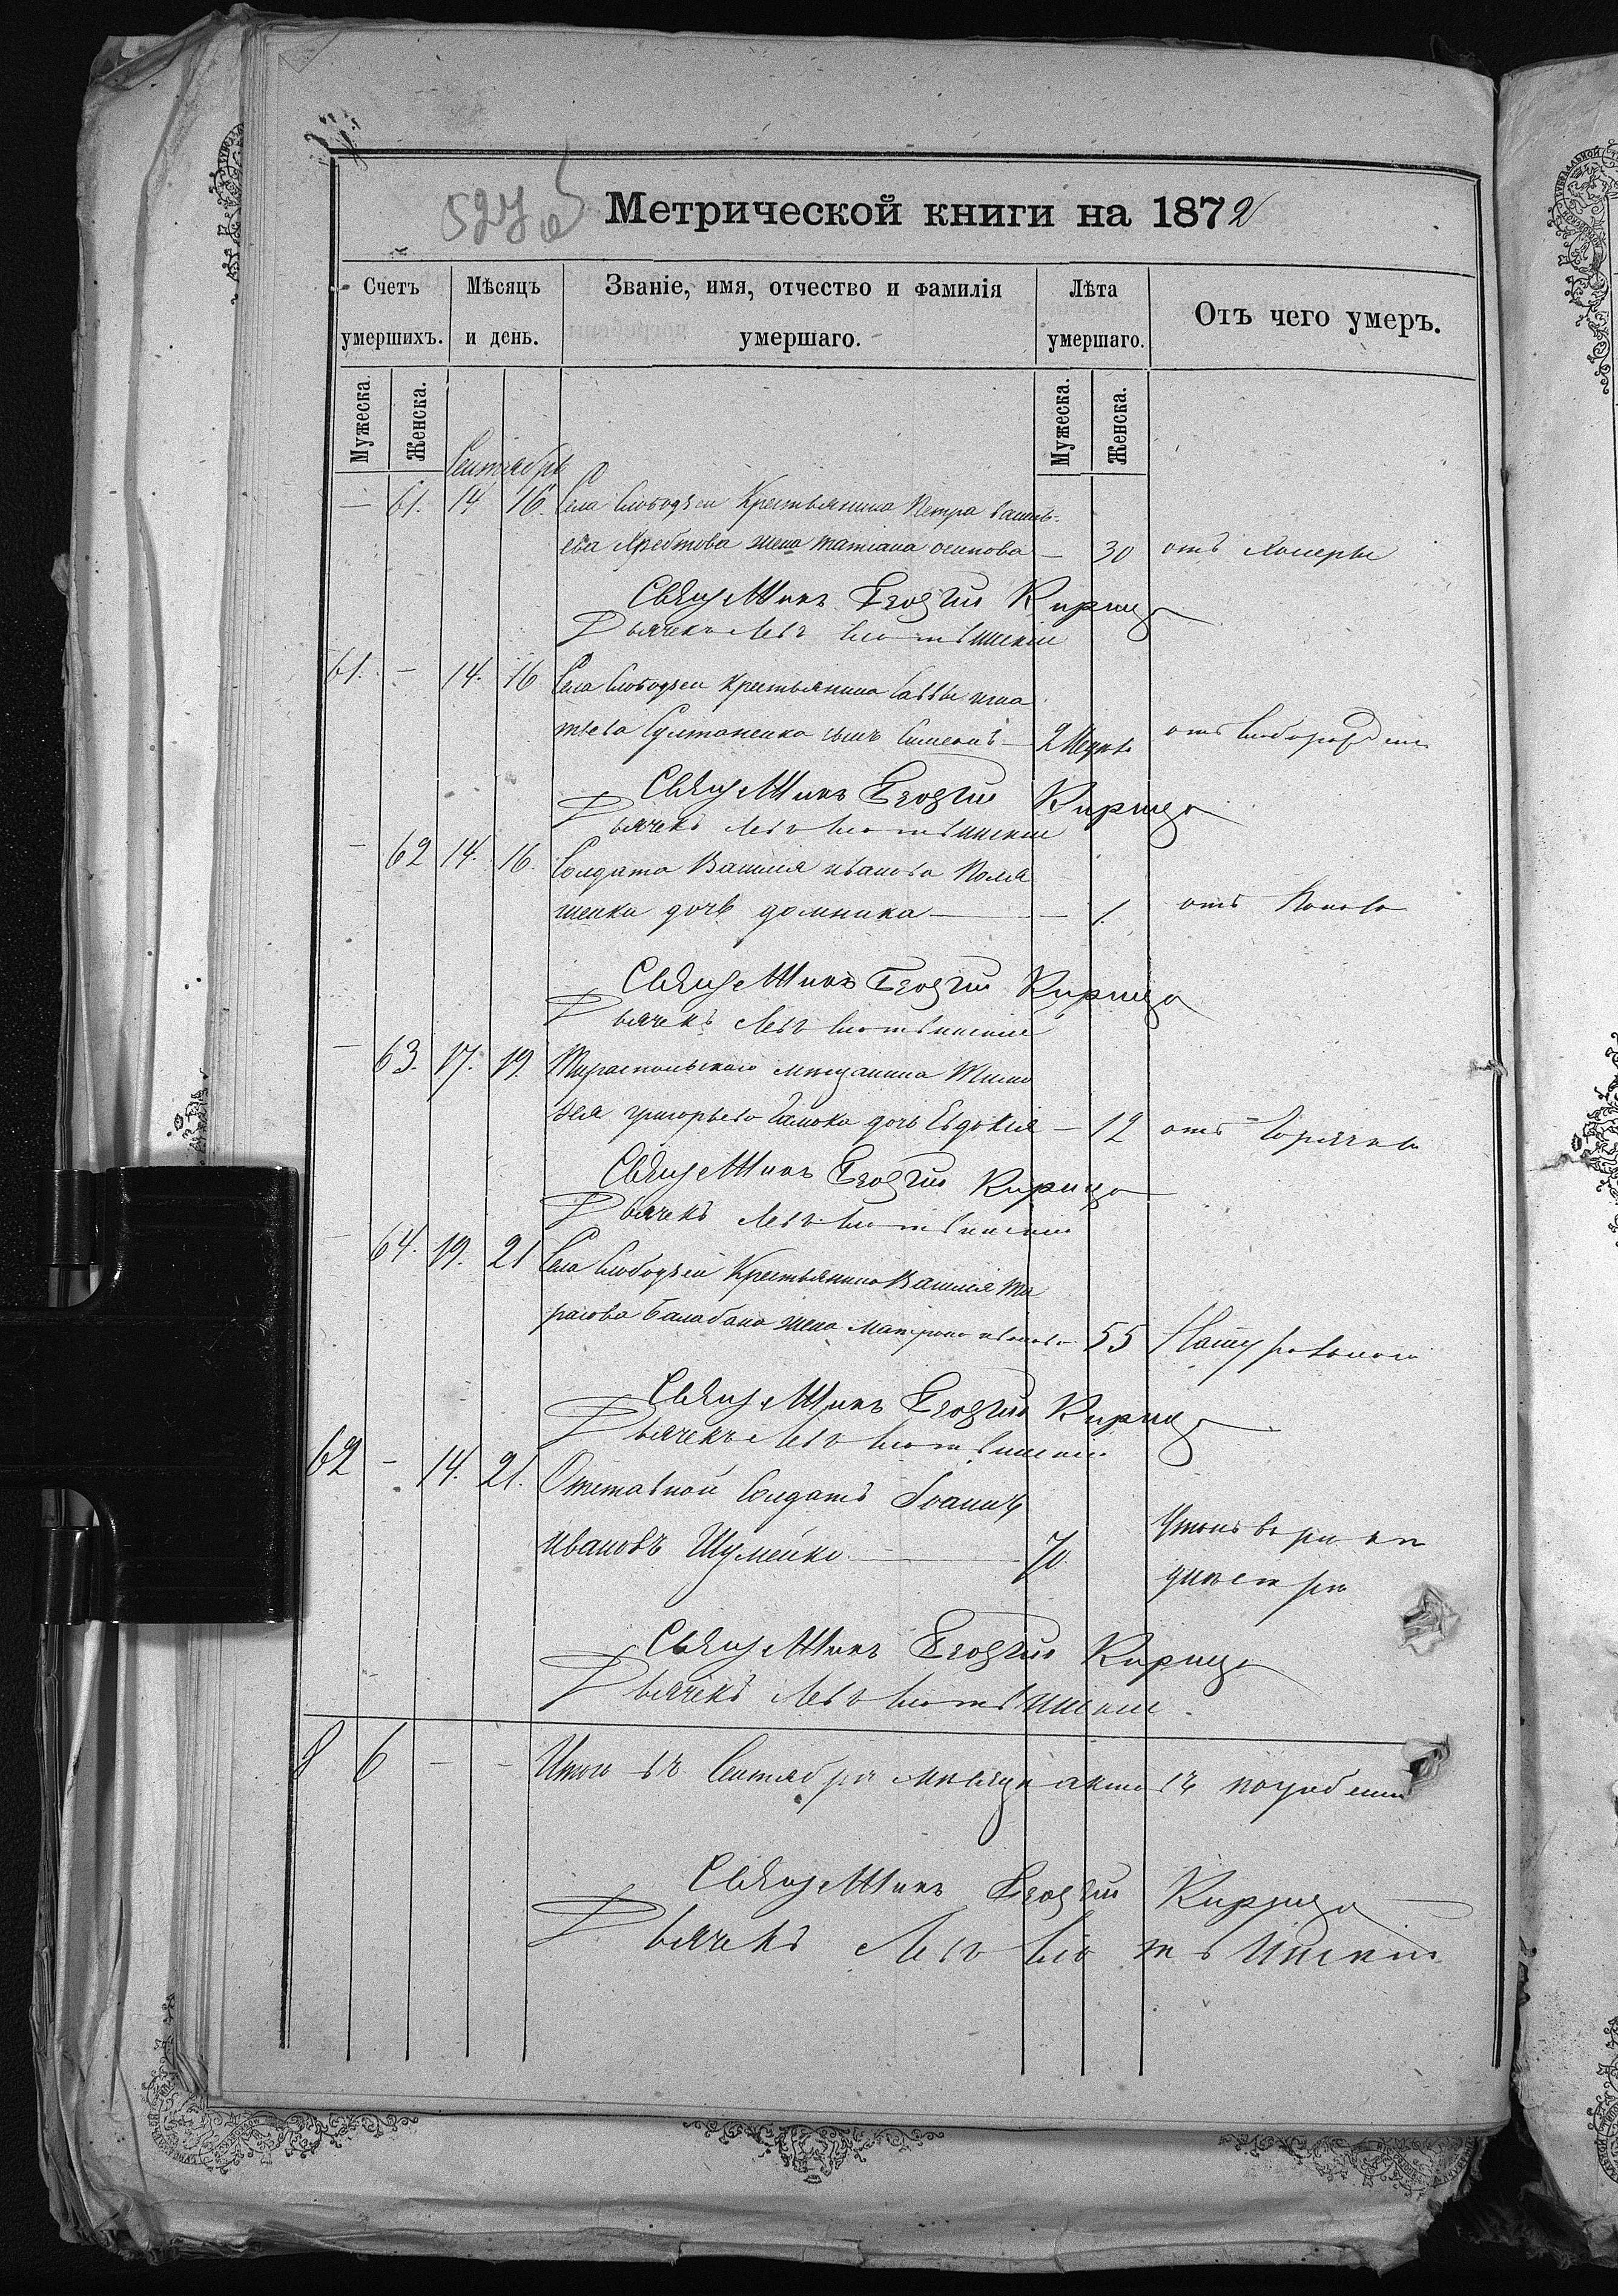 Метрической книги на 1872
Счетъ умершихъ. Мѣсяцъ и день. Званіе, имя, отчество и фамилія умершаго. Лѣта умершаго. Отъ чего умеръ.
Мужеска. Женска. Мужеска. Женска.
Сентябрь
— 61. 14 16. Села Слободзеи Крестьянина Петра Василь-
ева Хребтова жена татіана осипова — 30 отъ холеры
Священникъ Георгій Кирица
Дьячекъ Левъ
61. — 14. 16 Села Слободзеи Крестьянина Саввы игна
тьева Султаненка сынъ Симеонъ — 2 Недѣль отъ
Священникъ Георгій Кирица
Дьячекъ Левъ
— 62 14. 16. Солдата Василія иванова
дочь домника — — 1. отъ
Священникъ Георгій Кирица
Дьячекъ Левъ
— 63. 17. 19. Тираспольскаго мѣщанина Тимо
ѳея григорьева дочь Евдокія — 12 отъ Горячки
Священникъ Георгій Кирица
Дьячекъ Левъ
— 64. 19. 21 Села Слободзеи Крестьянина Василія та
расова Балабана жена матрона иванова 55 Натуральною
Священникъ Георгій Кирица
Дьячекъ Левъ
62 — 14. 21. Отставной Солдатъ Іоаннъ
ивановъ Шумейко — 70. Утонъ въ рѣкѣ
днѣстрѣ
Священникъ Георгій Кирица
Дьячекъ Левъ
8 6 — — Итого въ Сентябрѣ мѣсяцѣ актовъ погребенія
Священникъ Георгій Кирица
Дьячекъ Левъ